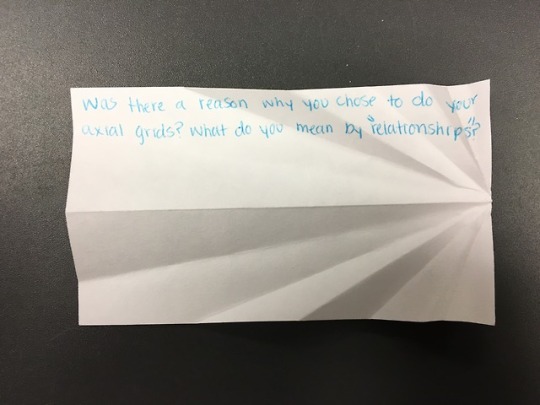 Was there a reason why you chose to do your
axial grids? What do you mean by "relationships"?